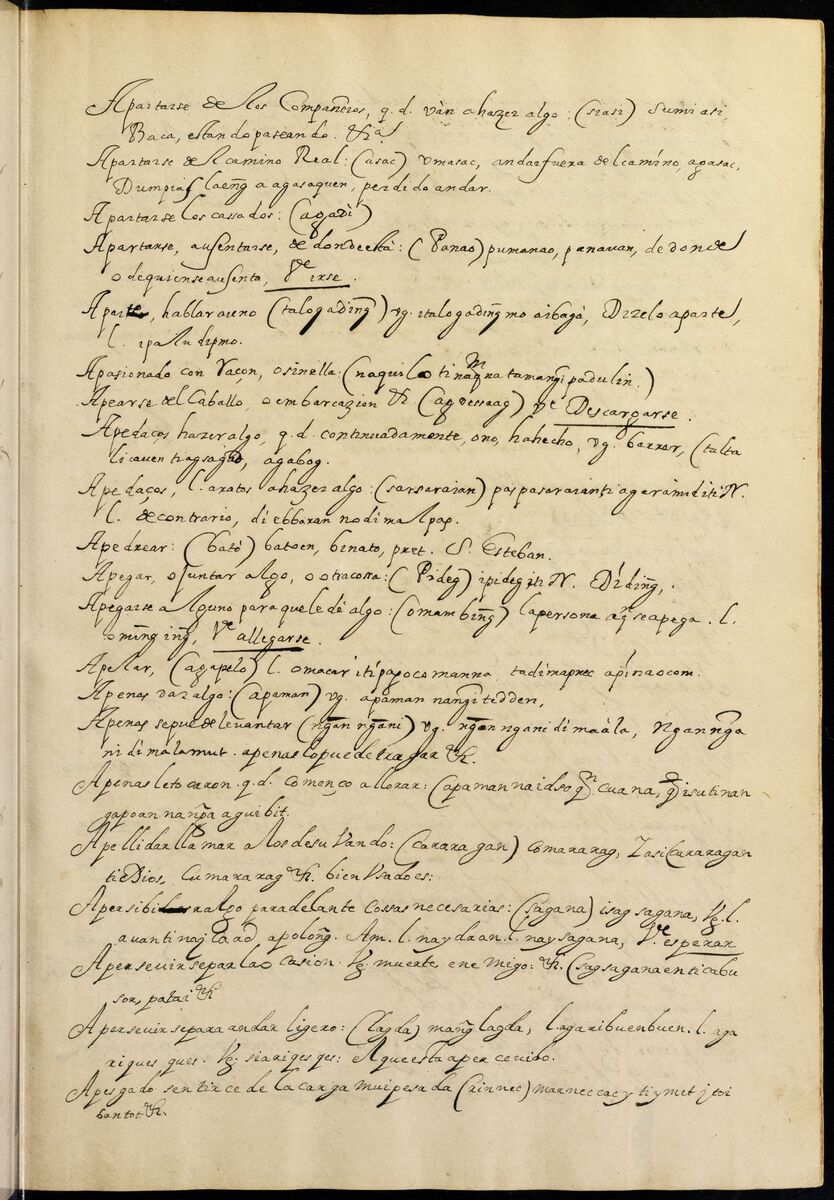 Apartarse de los Compañeros, q. d. vàn a hazer algo: (siasi) Sumiasi,
Baca, estando paseando. &a
Apartarse del camino Real: (asac) vmasac, andar fuera del camino, agasac,
Dumpias laeng a agasaquen, perdido andar.
Apartarse los cassados: (agadì)
Apartarse, ausentarse, de donde està: (Panao) pumanao, panavan, de donde
o de quien se ausenta, Ve irse.
Aparte, hablar a uno (talogading) vg. italogading mo aibagà, Dizelo aparte,
l. ipaludipmo.
Apasionado con raçon, o sin ella: (naquilo ti naqra tamangi padulin.)
Apearse del Caballo, o embarcazion & (agdessaag) Ve Descargarse.
A pedaços hazer algo, q. d. continuadamente, o no, ha hecho, vg. barrer, (talta
licauen tragsagad, agabog.
A pedaços, l. a ratos a hazer algo: (sarsaraian) paspasaraianti agaramiditi N.
l. de contrario, di ebbaran no di malpas.
Apedrear: (batò) batoen, binato, pret. S. Esteban.
Apegar, o juntar algo, o otra cossa: (Pideg) ipideg iti N. Diding,.
Apegarse alguno para que le dè algo: (omambing) la persona aq. se apega. l.
oming ing, Ve allegarse.
Apelar, (agapelò) l. omacar iti papoco manna, tadimapnec apinaocom.
Apenas dar algo: (apaman) vg. apaman nangitedden,
Apenas se puede levantar (ngan ngani) vg. ngan ngani di maàla, Ngannga
ni di malamut. apenas lo puede tragar &.
Apenas le tocaron. q. d. Començo a llorar: (apaman naidso qn. cuana, q isu tinan
gapoan nanga aguibit.
Apellidar llamar a los de su Vando: (Cararagan) Comararag, Zasi Cararagan
ti Dios, Cumararag &. bien Vsado es:
Apersibir algo para delante cossas necesarias: (sagana) isagsagana, Vg. l.
auanti naj Caad apolong. Am. l. naydran. l. naysagana, Ve. esperar
Apersevirse para la o Casion. Vg. muerte, enemigo: &. (sagsagana enticabu
son, patai &
Apersevirse para andar ligero: (lagda) mang lagda, l. agaribuenbuen. l. aga
riques ques. Vg. siarigesges: El que esta apercevido.
Apesgado sentirce de la carga mui pesada (rinnec) marneccacy ti ymet j toi
bantot &.